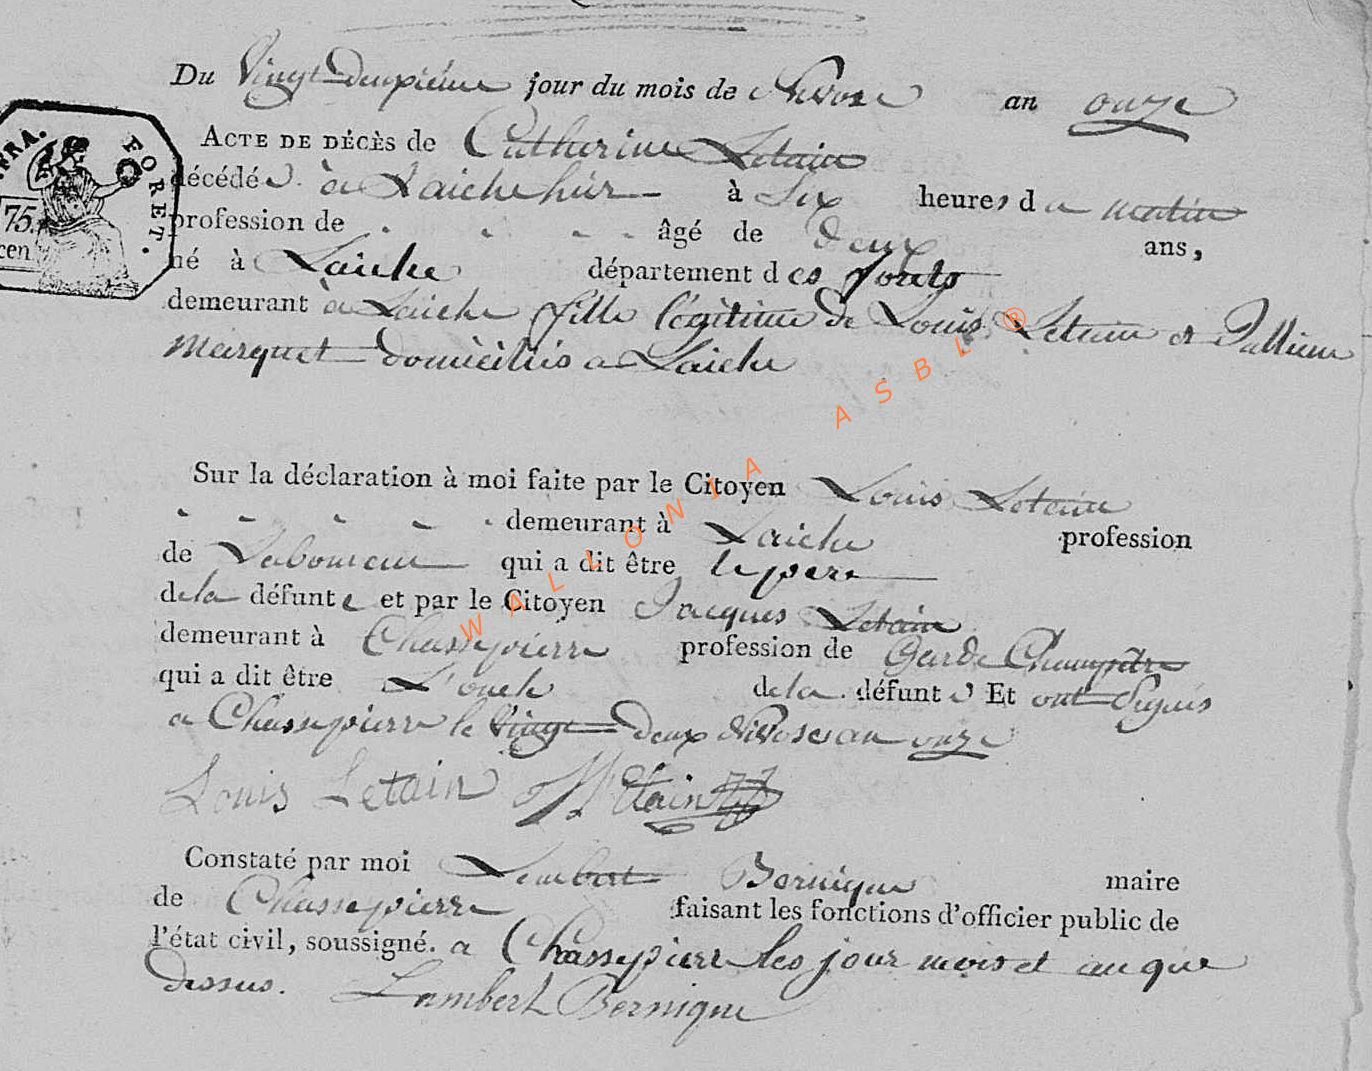 Du Vingt Deuxième jour du mois de Nivose an onze
ACTE DE DÉCÈS de Catherine Letain
décédée à Laiche hier à Six heures du matin
profession de - - - - âgé de deux ans,
né à Laiche département des forêts
demeurant à Laiche fille légitime de Louis Letain et
Marquet domiciliés a Laiche
Sur la déclaration à moi faite par le Citoyen Louis Letain
- - - - - demeurant à Laiche profession
de Laboureur qui a dit être le pere
de la défunte et par le Citoyen Jacques Letain
demeurant à Chassepierre profession de Garde Champêtre
qui a dit être L'oncle de la défunte Et ont Signés
a Chassepierre le Vingt Deux Nivose an onze
Louis Letain
Constaté par moi Lambert Bernique maire
de Chassepierre faisant les fonctions d'officier public de
l'état civil, soussigné. a Chassepierre les jour mois et an que
dessus. Lambert Bernique
FRA.
FORET.
75.
cen
WALLONIA ASBL ®